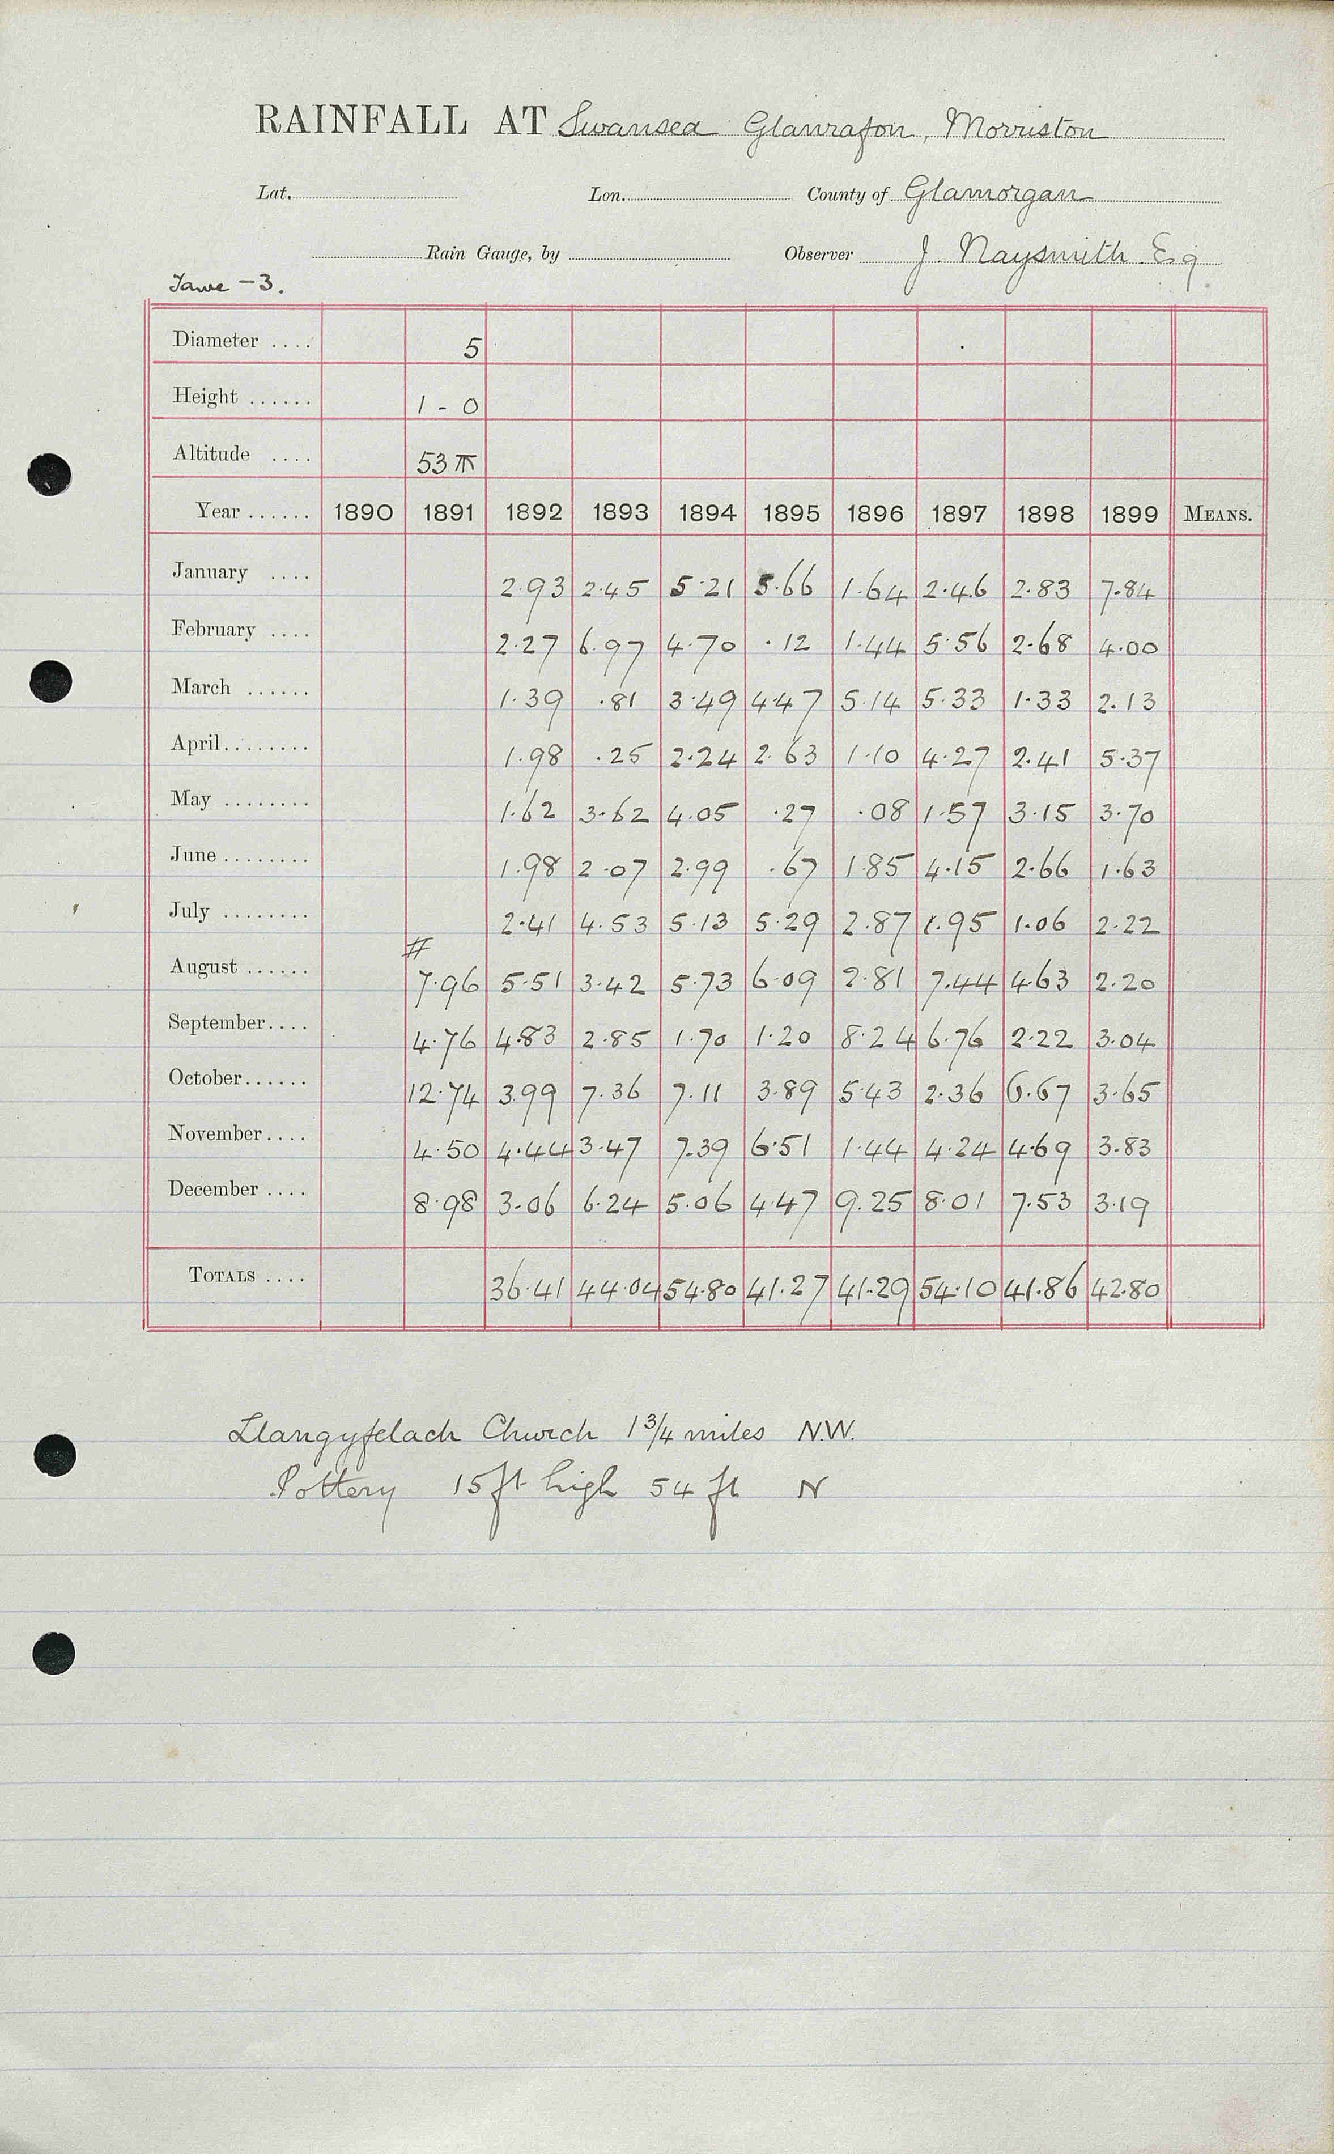 RAINFALL AT Swansea Glanrafon, Morriston
Lat. Lon. County of Glamorgan
Rain Gauge, by Observer J. Naysmith Esq
Tawe - 3.
Diameter .... 5
Height ...... 1 - 0
Altitude .... 53
Year ...... 1890 1891 1892 1893 1894 1895 1896 1897 1898 1899 MEANS.
January .... 2.93 2.45 5.21 5.66 1.64 2.46 2.83 7.84
February .... 2.27 6.97 4.70 .12 1.44 5.56 2.68 4.00
March ...... 1.39 .81 3.49 4.47 5.14 5.33 1.33 2.13
April........ 1.98 .25 2.24 2.63 1.10 4.27 2.41 5.37
May ........ 1.62 3.62 4.05 .27 .08 1.57 3.15 3.70
June ........ 1.98 2.07 2.99 .67 1.85 4.15 2.66 1.63
July ........ 2.41 4.53 5.13 5.29 2.87 1.95 1.06 2.22
#
August ...... 7.96 5.51 3.42 5.73 6.09 2.81 7.44 4.63 2.20
September.... 4.76 4.83 2.85 1.70 1.20 8.24 6.76 2.22 3.04
October...... 12.74 3.99 7.36 7.11 3.89 5.43 2.36 6.67 3.65
November.... 4.50 4.44 3.47 7.39 6.51 1.44 4.24 4.69 3.83
December .... 8.98 3.06 6.24 5.06 4.47 9.25 8.01 7.53 3.19
TOTALS .... 36.41 44.04 54.80 41.27 41.29 54.10 41.86 42.80
Llangyfelach Church 1 3/4 miles N.W.
Pottery 15 ft high 54 ft N